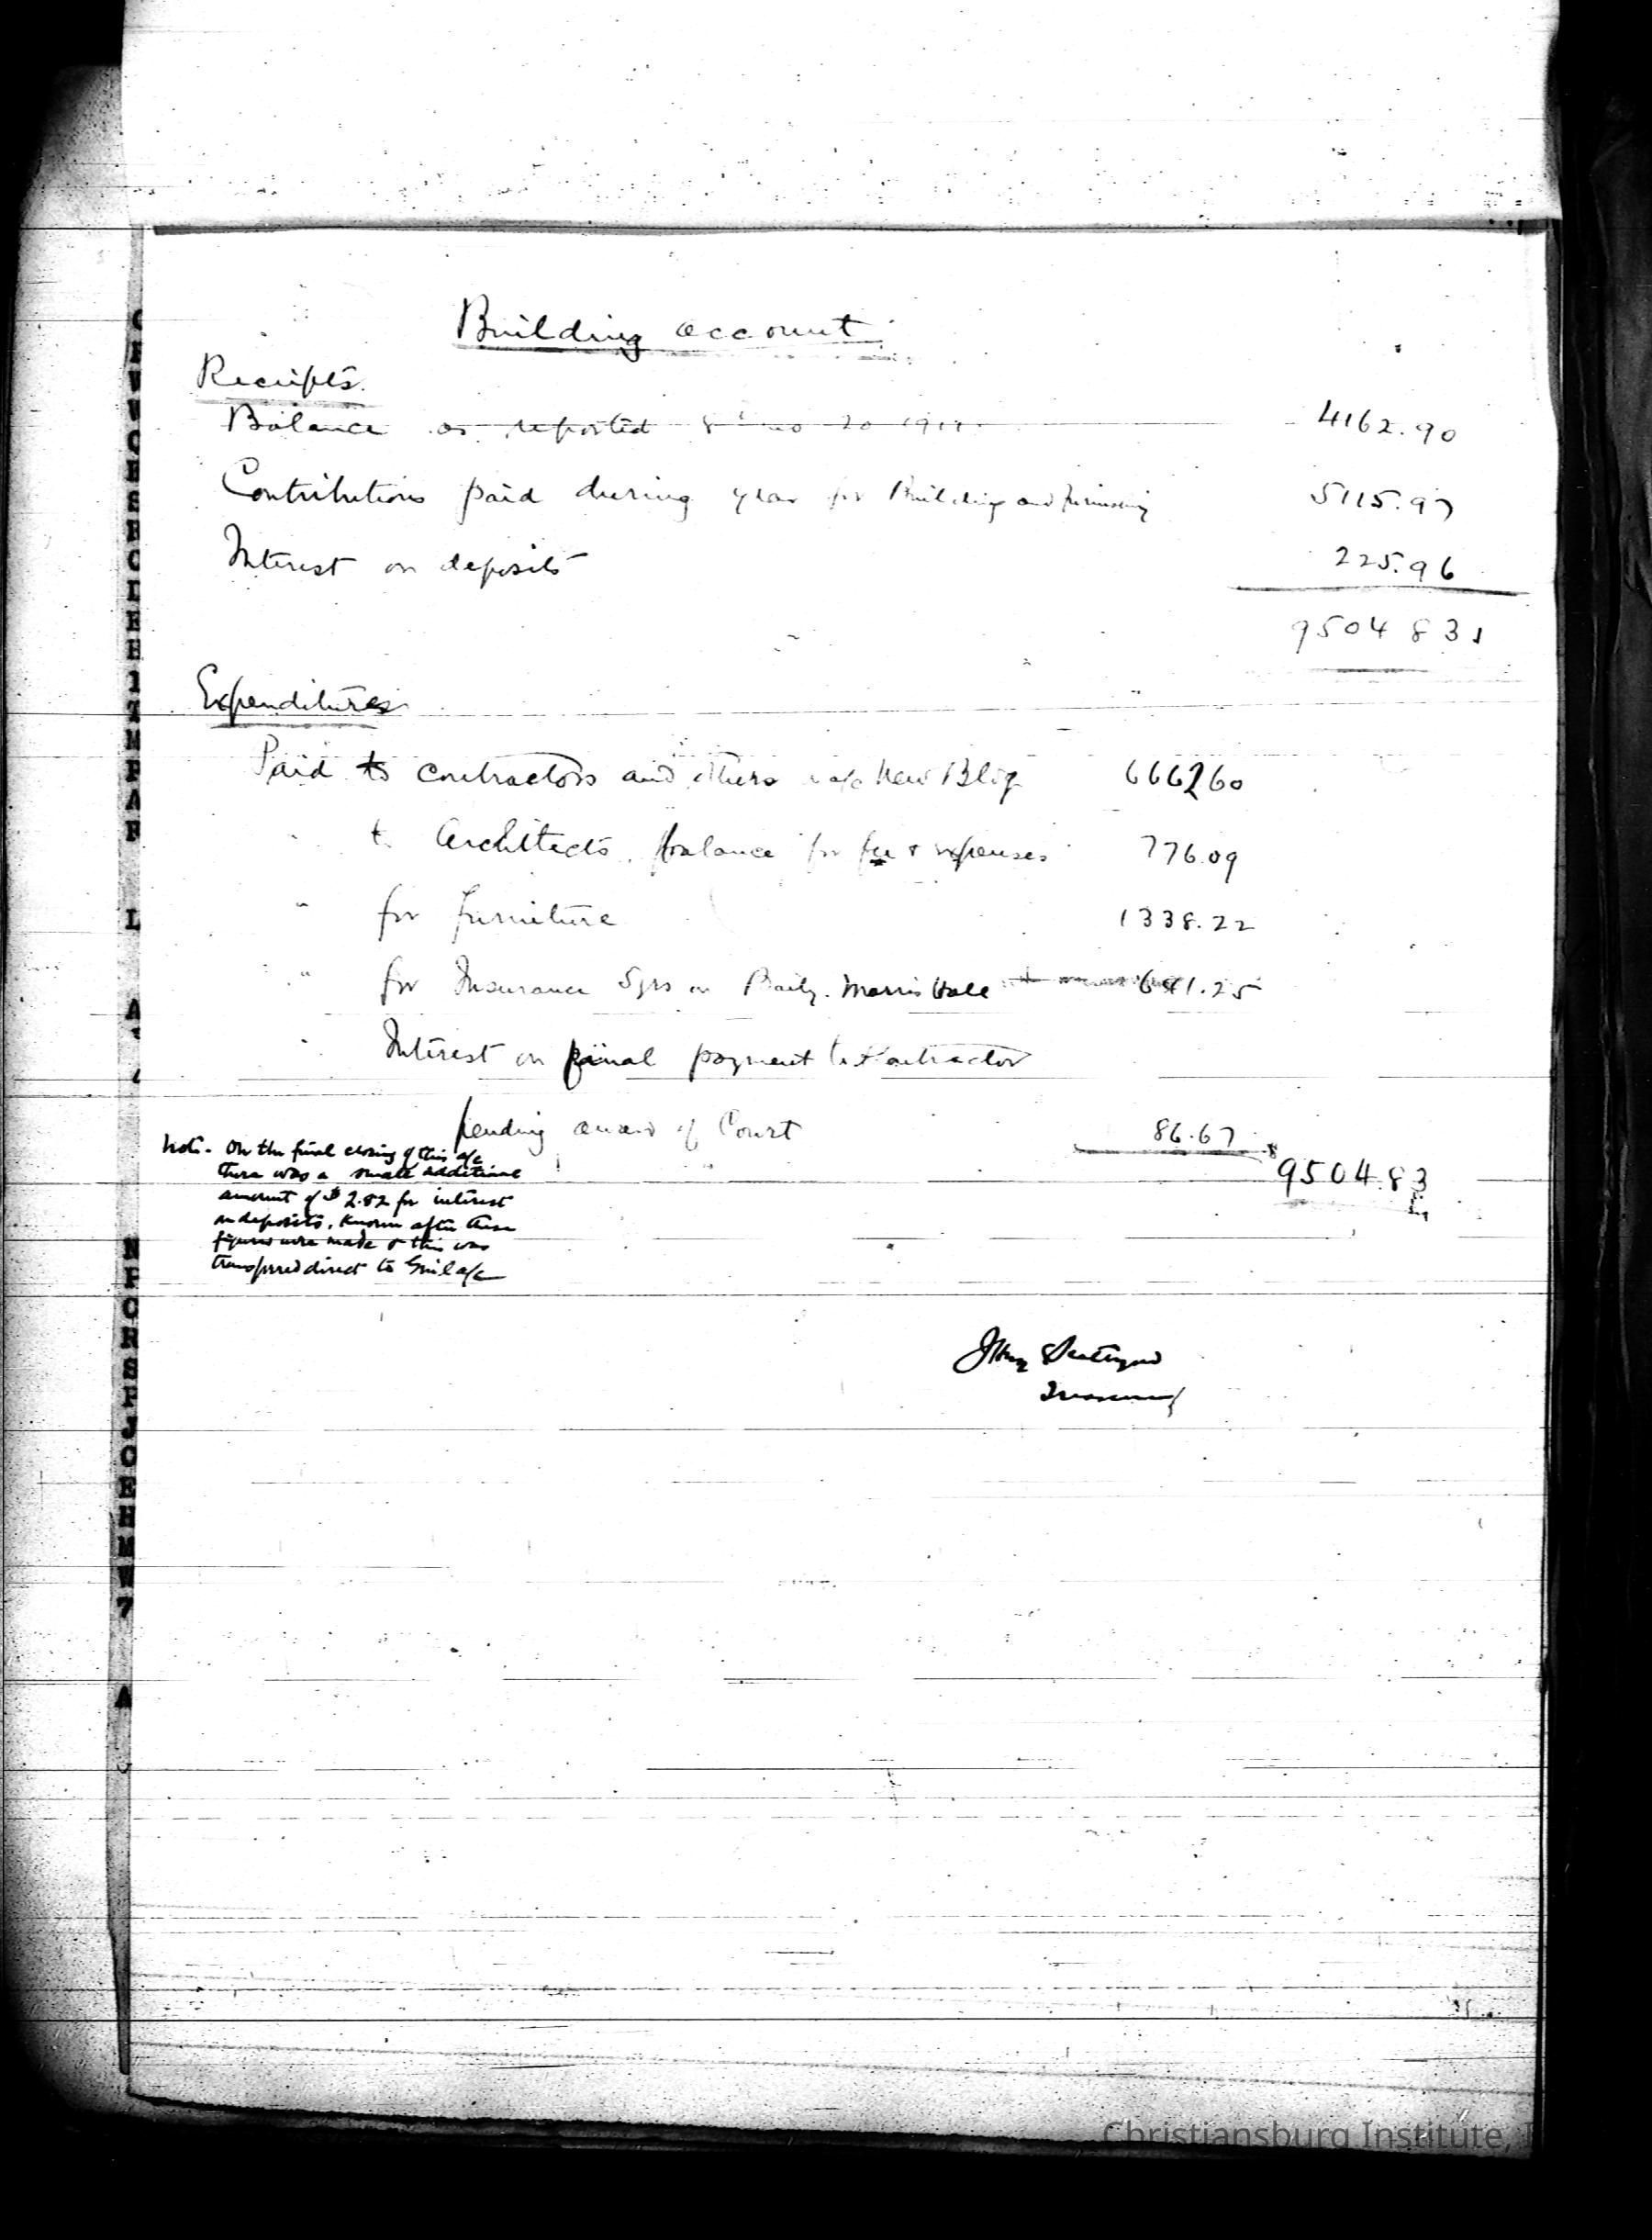 Building account
Receipts.
Balance as reported 8 mo 20 191 4162.90
Contributions paid during year for Building and furnishing 5115.97
Interest on deposits 225.96
9504 83
Expenditures
Paid to contractors and others a/c New Bldg 666260
" to Architects, balance for fee & expenses 776.09
" for furniture 1338.22
" for Insurance 5 yrs on Baily. Morris Hall 641.25
" Interest on final payment to Contractor
pending award of Court 86.67
9504.83
Note - On the final closing of this a/c
there was a small additional
amount of $2.82 for interest
on deposits, known after these
figures were made & this was
transferred direct to Genl a/c
Treasurer
Christiansburg Institute,